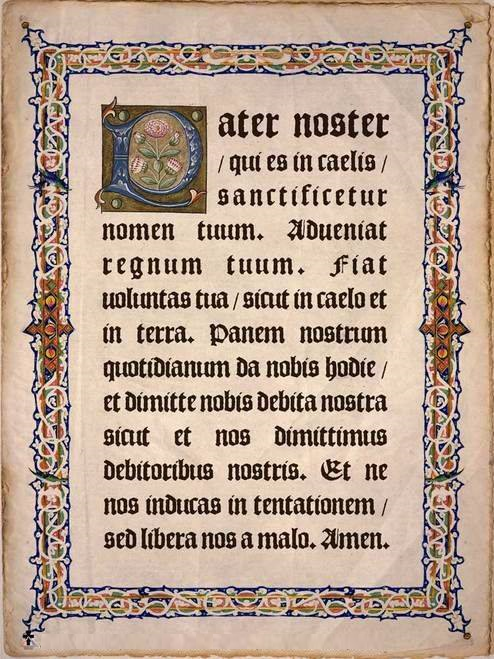 Pater noster
/ qui es in caelis /
sanctificetur
nomen tuum. Adveniat
regnum tuum. Fiat
voluntas tua / sicut in caelo et
in terra. Panem nostrum
quotidianum da nobis hodie /
et dimitte nobis debita nostra
sicut et nos dimittimus
debitoribus nostris. Et ne
nos inducas in tentationem /
sed libera nos a malo. Amen.